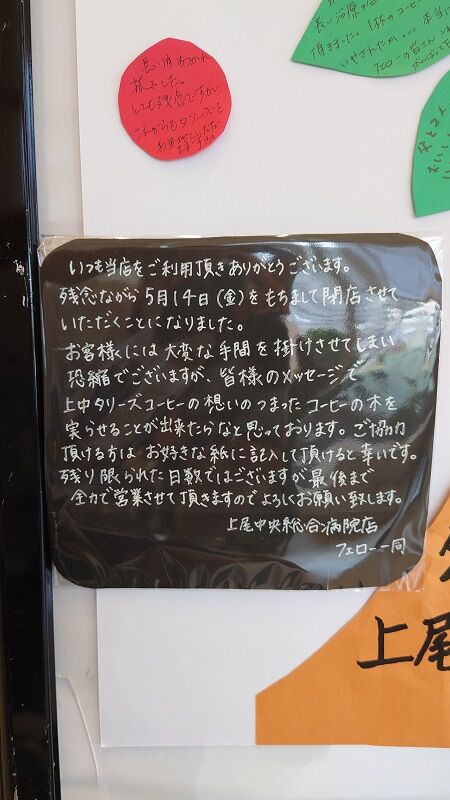 長い間おつかれ
様でした。
とても残念ですが
これからもタリーズを
長い治療の
頂きました。1杯のコーヒー
いやされたか... 本当に
フェローの皆さん
いつも当店をご利用頂きありがとうございます。
残念ながら5月14日(金)をもちまして閉店させて
いただくことになりました。
お客様には大変な手間を掛けさせてしまい
恐縮でございますが、皆様のメッセージで
上中タリーズコーヒーの想いのつまったコーヒーの木を
実らせることが出来たらなと思っております。ご協力
頂ける方はお好きな紙に記入して頂けると幸いです。
残り限られた日数ではございますが最後まで
全力で営業させて頂きますのでよろしくお願い致します。
上尾中央総合病院店
フェロー一同
上尾